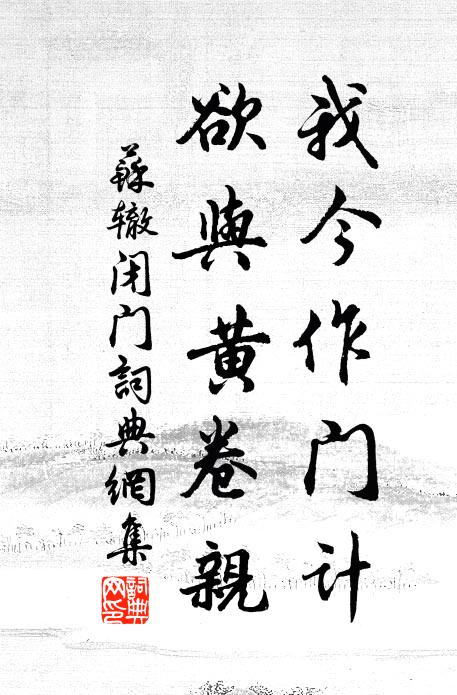 我今作门计
欲與黄卷親
蘇辙闭门詞典網集
詞典
网印